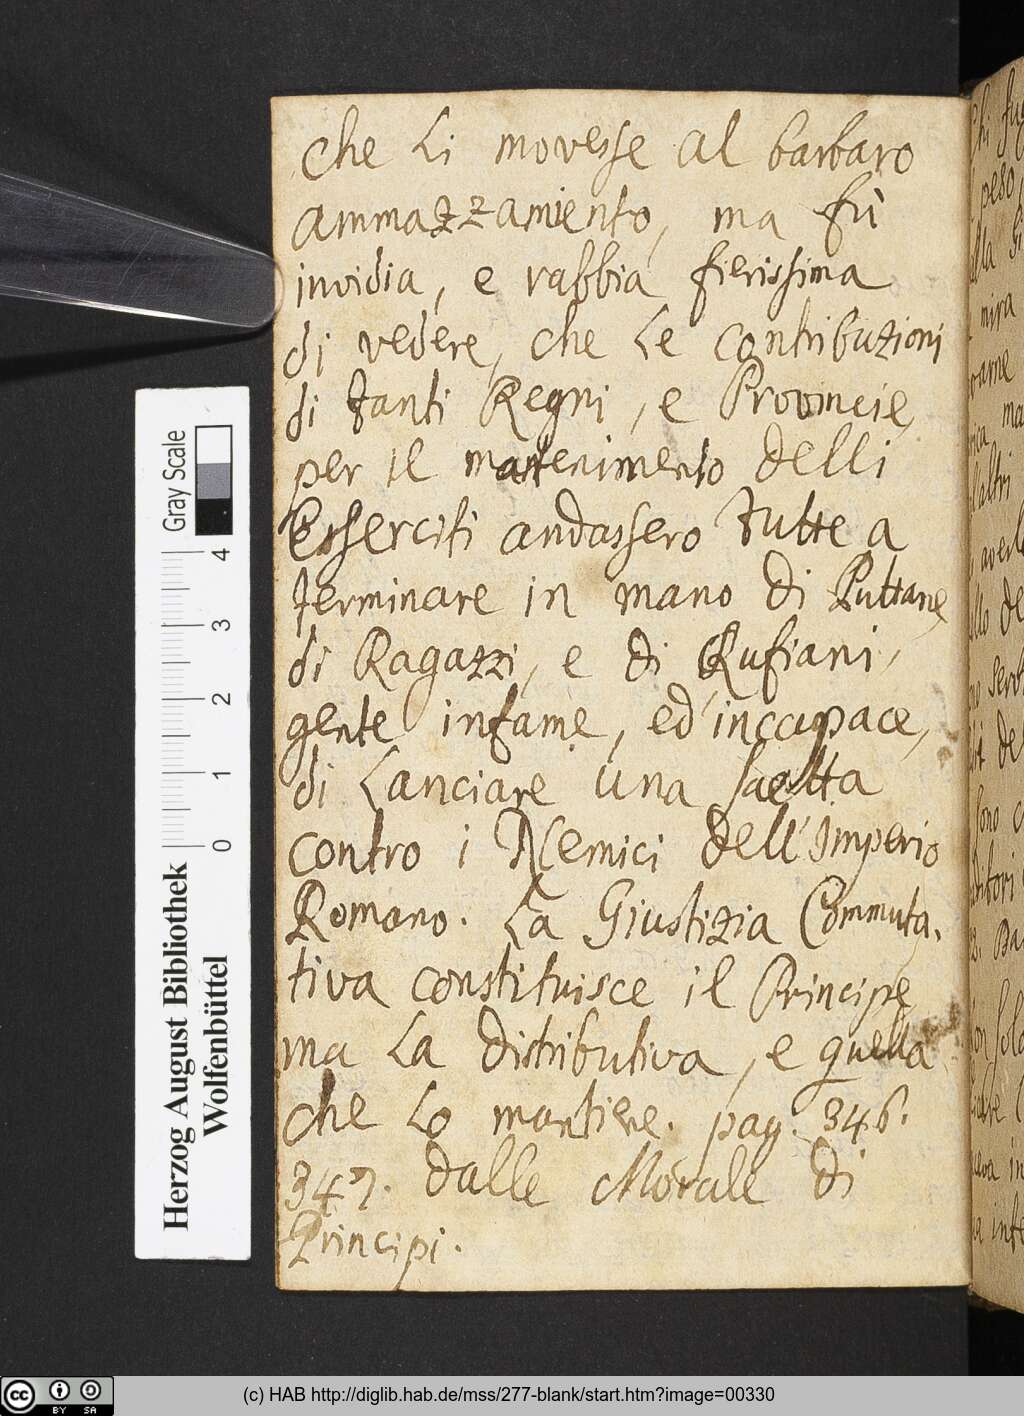 che li movesse al barbaro
ammazzamiento, ma fù
invidia, e rabbia fierissima
di vedere, che le contribuzioni
di tanti Regni, e Provincie,
per il mantenimento delli
Esserciti andassero tutte a
terminare in mano di Puttane,
di Ragazzi, e di Rufiani,
gente infame, ed'inccapace,
di lanciare una saetta
contro i Nemici dell'Imperio
Romano. La Giustizia Commuta-
tiva constituisce il Principe,
ma la distributiva, e quella
che lo mantiene. pag. 346.
347. dalle Morale di
Principi.
Herzog August Bibliothek
Wolfenbüttel
Gray Scale
0 1 2 3 4
(c) HAB http://diglib.hab.de/mss/277-blank/start.htm?image=00330
cc BY SA